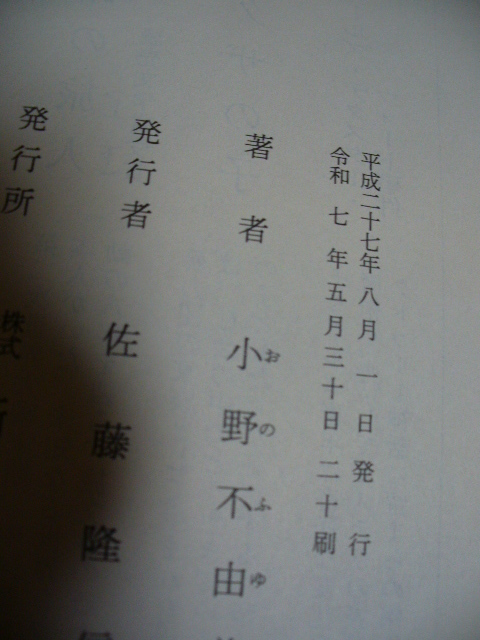 平成二十七年八月一日発行
令和七年五月三十日二十刷
著者 小野不由
おのふゆ
発行者 佐藤隆
発行所 株式